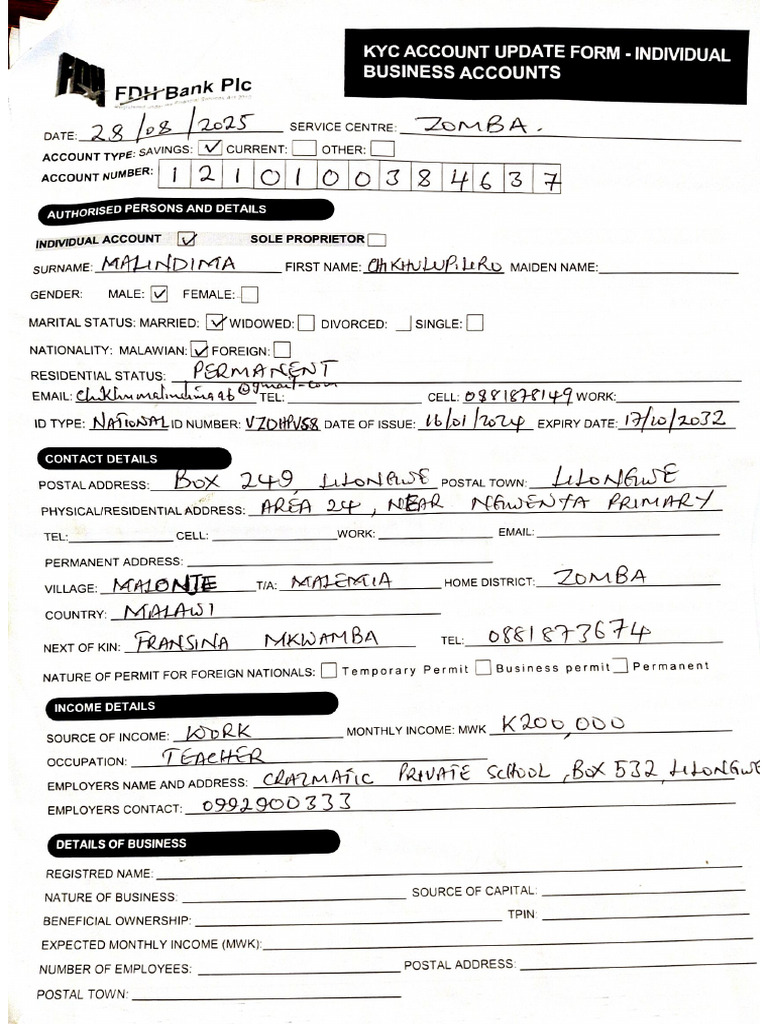 KYC ACCOUNT UPDATE FORM - INDIVIDUAL
BUSINESS ACCOUNTS
FDH
FDH Bank Plc
DATE: 28/08/2025 SERVICE CENTRE: ZOMBA.
ACCOUNT TYPE: SAVINGS: ✓ CURRENT: OTHER:
ACCOUNT NUMBER: 1 2 1 0 1 0 0 3 8 4 6 3 7
AUTHORISED PERSONS AND DETAILS
INDIVIDUAL ACCOUNT ✓ SOLE PROPRIETOR
SURNAME: MALINDIMA FIRST NAME: CHIKHULUPILIRO MAIDEN NAME:
GENDER: MALE: ✓ FEMALE:
MARITAL STATUS: MARRIED: ✓ WIDOWED: DIVORCED: SINGLE:
NATIONALITY: MALAWIAN: ✓ FOREIGN:
RESIDENTIAL STATUS: PERMANENT
EMAIL: @gmail.com TEL: CELL: 0881878149 WORK:
ID TYPE: NATIONAL ID NUMBER: VZDHPV58 DATE OF ISSUE: 16/01/2024 EXPIRY DATE: 17/10/2032
CONTACT DETAILS
POSTAL ADDRESS: BOX 249, LILONGWE POSTAL TOWN: LILONGWE
PHYSICAL/RESIDENTIAL ADDRESS: AREA 24, NEAR NGWENYA PRIMARY
TEL: CELL: WORK: EMAIL:
PERMANENT ADDRESS:
VILLAGE: MALONJE T/A: MALEMIA HOME DISTRICT: ZOMBA
COUNTRY: MALAWI
NEXT OF KIN: FRANSINA MKWAMBA TEL: 0881873674
NATURE OF PERMIT FOR FOREIGN NATIONALS: Temporary Permit Business permit Permanent
INCOME DETAILS
SOURCE OF INCOME: WORK MONTHLY INCOME: MWK K200,000
OCCUPATION: TEACHER
EMPLOYERS NAME AND ADDRESS: CRAZMATIC PRIVATE SCHOOL, BOX 532, LILONGWE
EMPLOYERS CONTACT: 0992900333
DETAILS OF BUSINESS
REGISTRED NAME:
NATURE OF BUSINESS: SOURCE OF CAPITAL:
BENEFICIAL OWNERSHIP: TPIN:
EXPECTED MONTHLY INCOME (MWK):
NUMBER OF EMPLOYEES: POSTAL ADDRESS:
POSTAL TOWN: